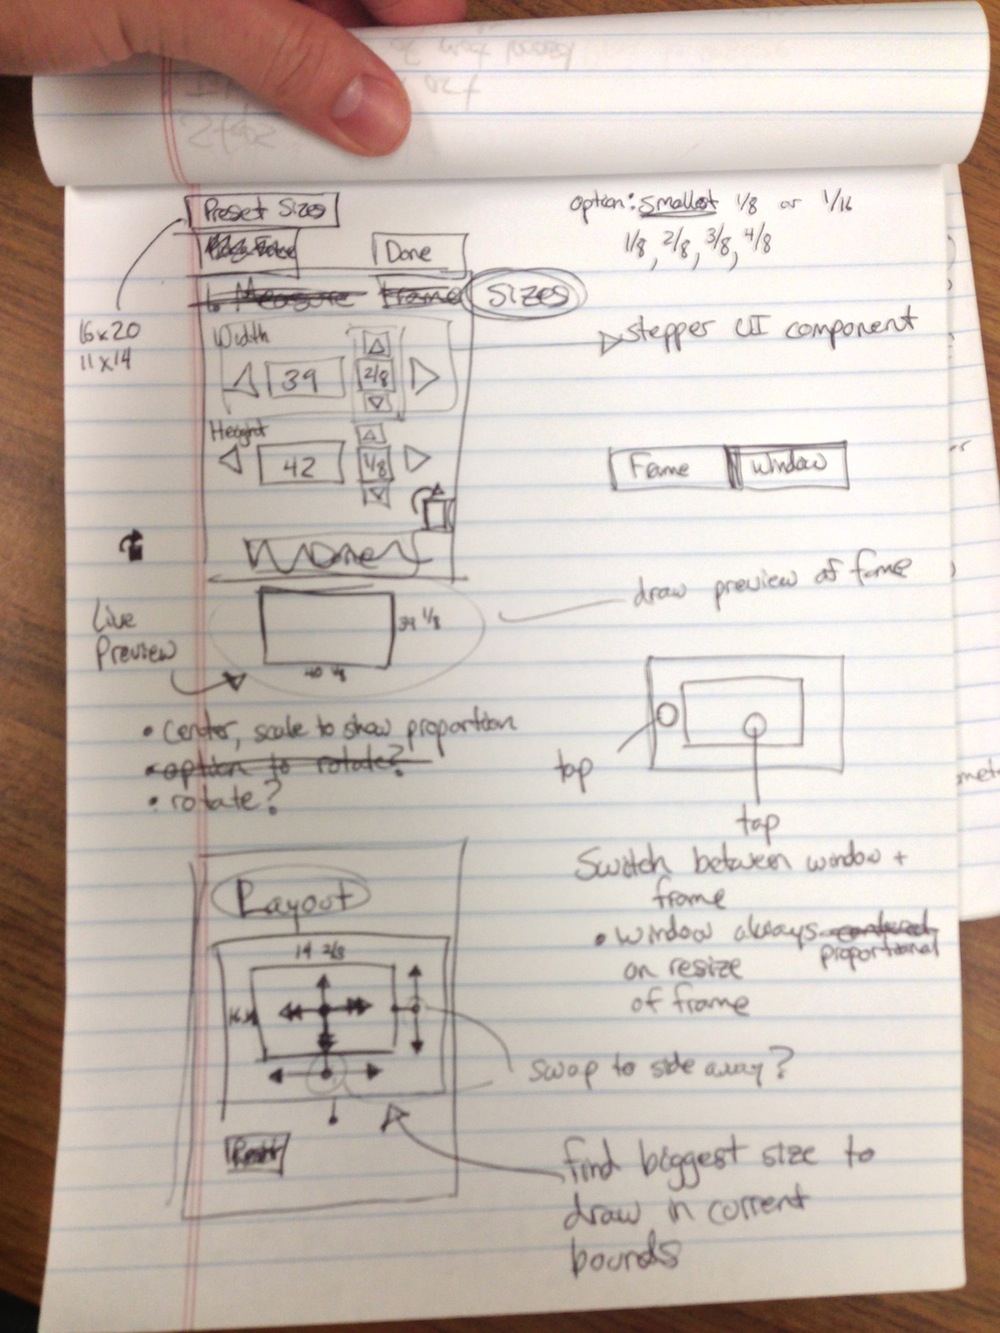 Preset Sizes
option: smallest 1/8 or 1/16
1/8, 2/8, 3/8, 4/8
Done
1. Measure Frame Sizes
16x20
11x14
Width
39 2/8
stepper UI component
Height
42 1/8
Frame Window
Done
Live
Preview
39 1/8
draw preview of frame
• Center, scale to show proportion
• option to rotate?
• rotate?
tap
tap
Switch between window +
frame
• window always centered
proportional
on resize
of frame
Layout
14 2/8
swap to side away?
Reset
find biggest size to
draw in current
bounds